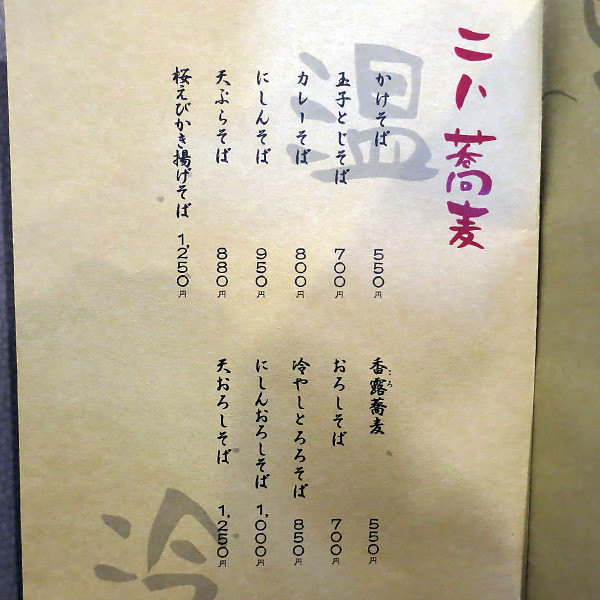 二八蕎麦
温
かけそば 550円
玉子とじそば 700円
カレーそば 800円
にしんそば 950円
天ぷらそば 880円
桜えびかき揚げそば 1,250円
冷
香露蕎麦 550円
ころ
おろしそば 700円
冷やしとろろそば 850円
にしんおろしそば 1,000円
天おろしそば 1,250円